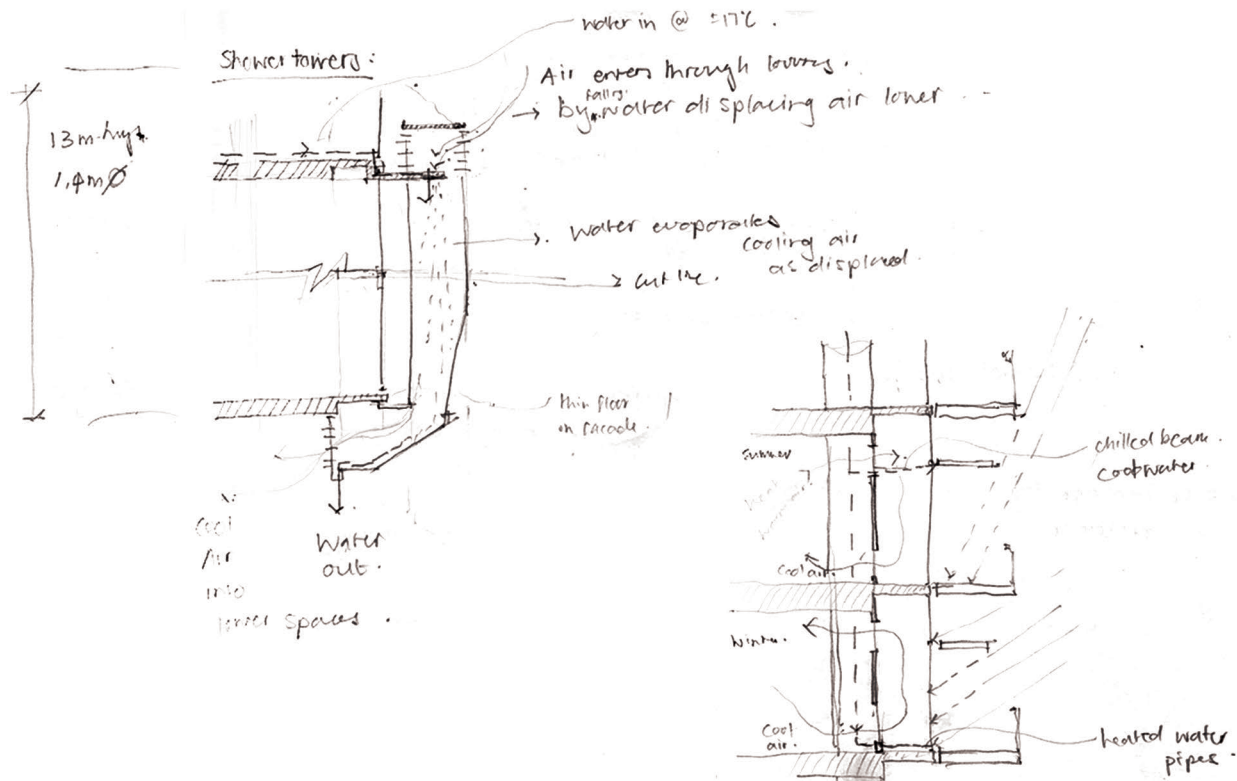 water in @ ±17℃.
Shower towers:
Air enters through louvres.
falling
→ by water displacing air lower
13m high
1,4mØ
water evaporates
cooling air
as displaced.
cut line.
thin floor
on facade.
cool
Air
into
lower spaces.
Water
out.
summer
chilled beam.
cool water.
cool air.
winter.
cool
air.
heated water
pipes.